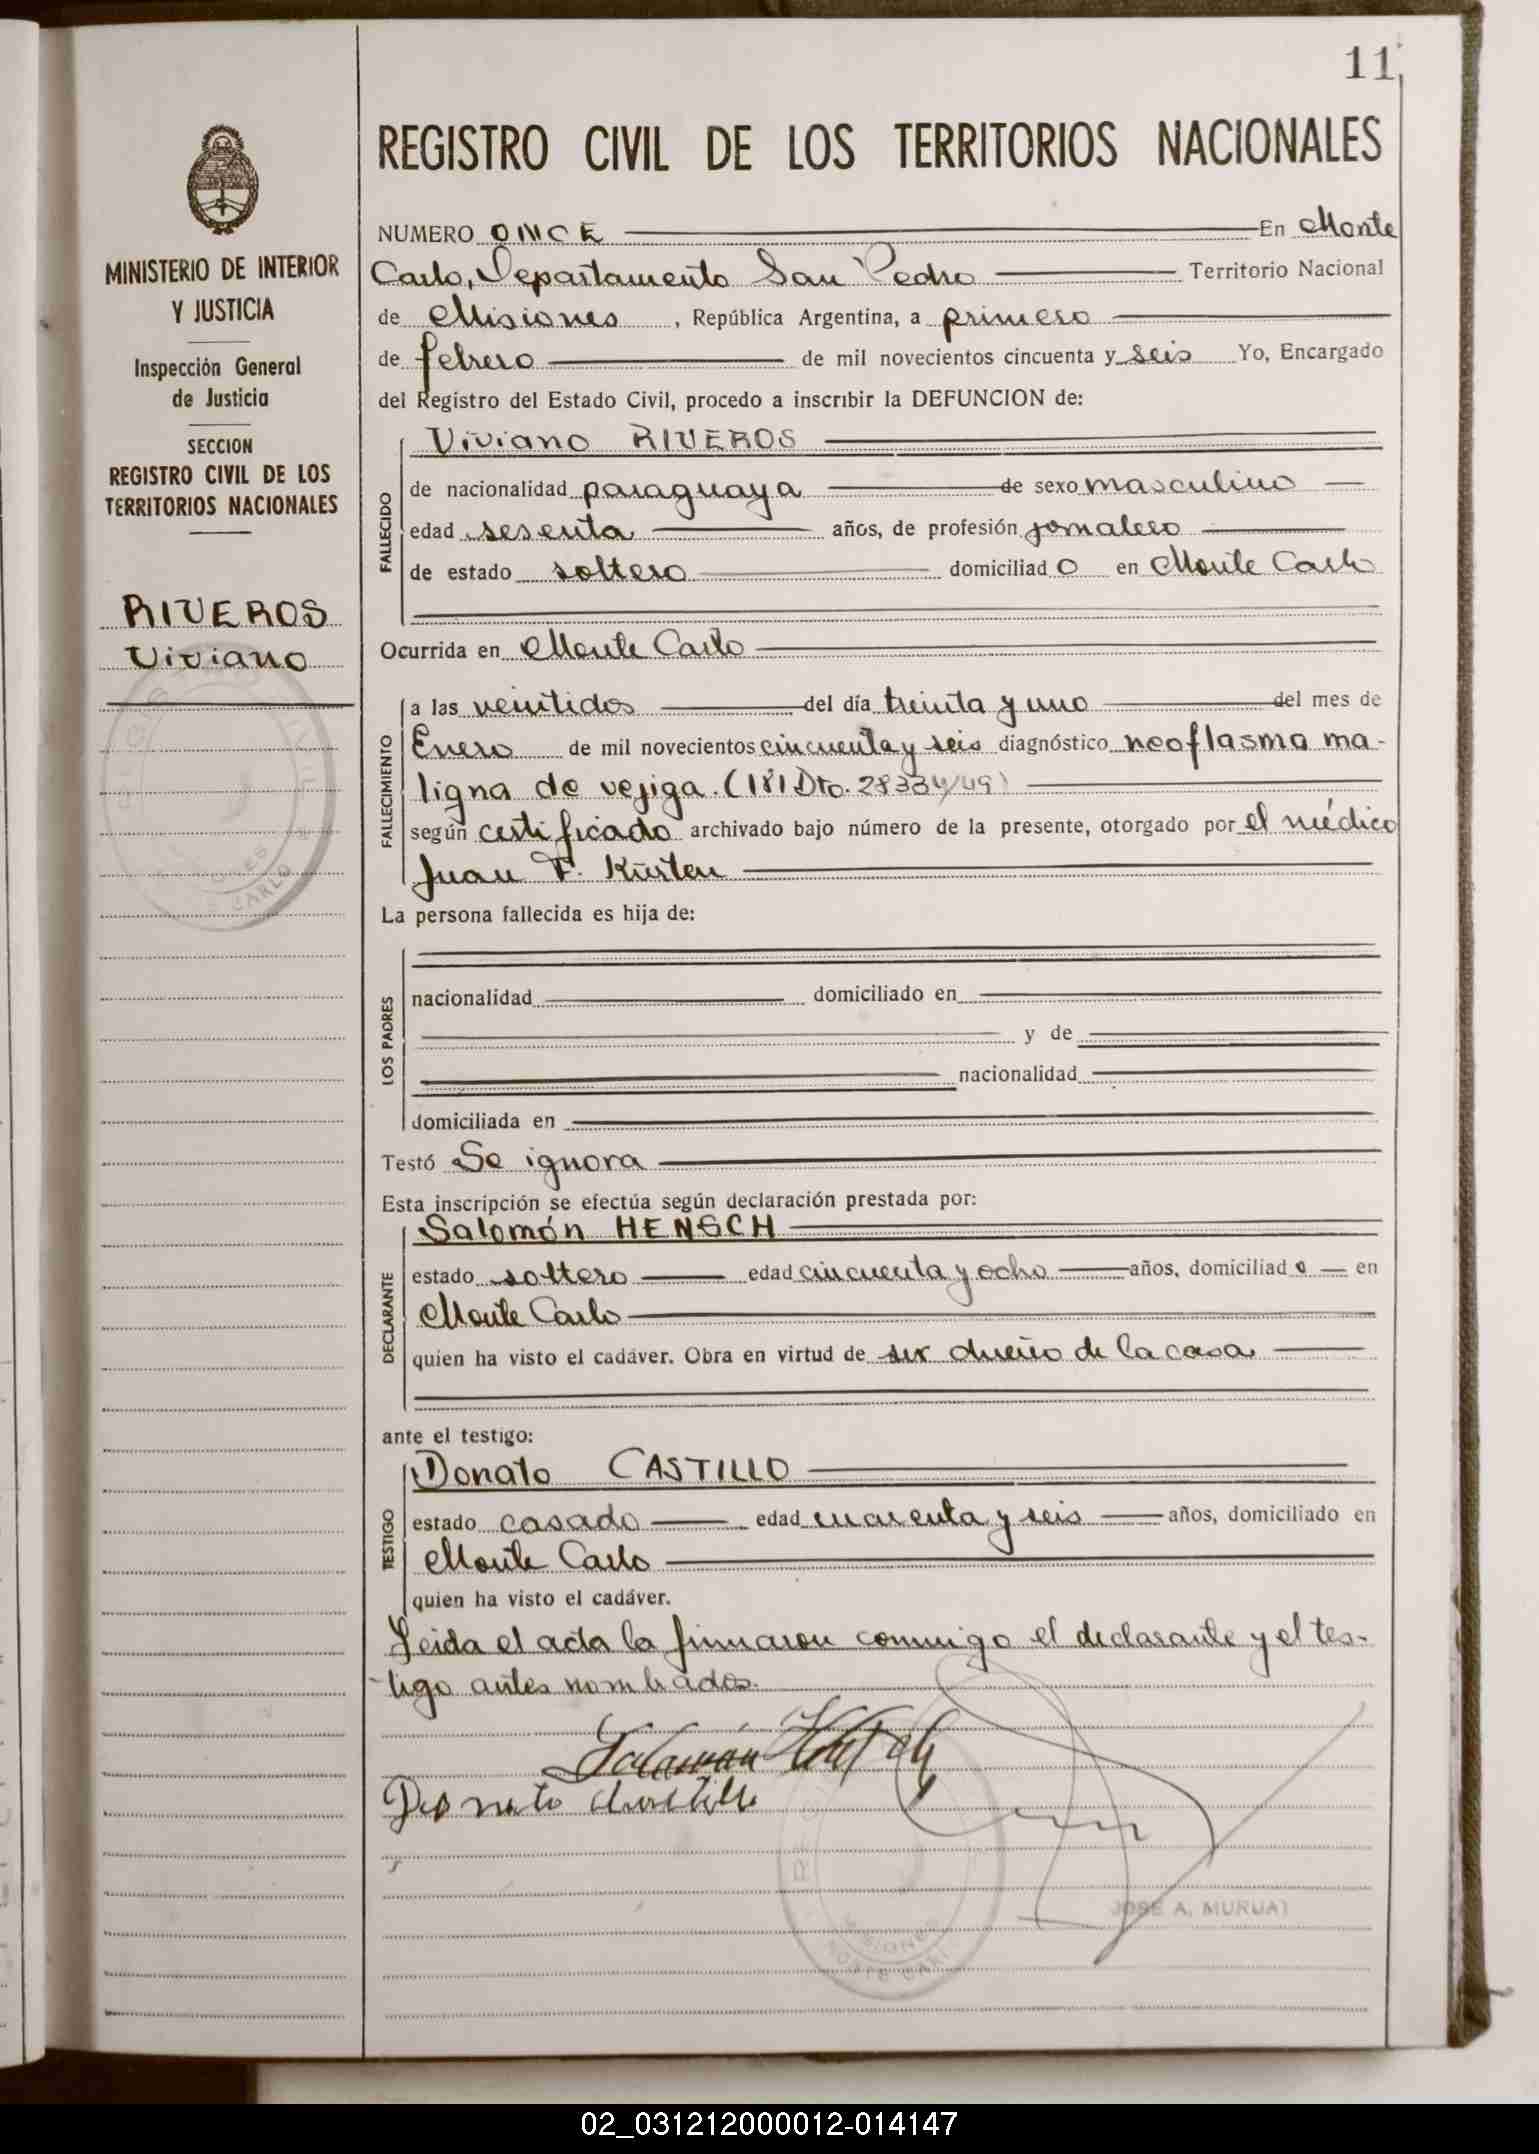 11
REGISTRO CIVIL DE LOS TERRITORIOS NACIONALES
MINISTERIO DE INTERIOR
Y JUSTICIA
Inspección General
de Justicia
SECCION
REGISTRO CIVIL DE LOS
TERRITORIOS NACIONALES
RIVEROS
Viviano
NUMERO ONCE En Monte
Carlo, Departamento San Pedro Territorio Nacional
de Misiones, República Argentina, a primero
de febrero de mil novecientos cincuenta y seis Yo, Encargado
del Registro del Estado Civil, procedo a inscribir la DEFUNCION de:
FALLECIDO
Viviano RIVEROS
de nacionalidad paraguaya de sexo masculino
edad sesenta años, de profesión jornalero
de estado soltero domiciliado en Monte Carlo
Ocurrida en Monte Carlo
FALLECIMIENTO
a las veintidos del día treinta y uno del mes de
Enero de mil novecientos cincuenta y seis diagnóstico neoflasma ma-
ligna de vejiga. (181 Dto. 28334/49)
según certificado archivado bajo número de la presente, otorgado por el médico
Juan F. Kürten
La persona fallecida es hija de:
LOS PADRES
nacionalidad domiciliado en
y de
nacionalidad
domiciliada en
Testó Se ignora
Esta inscripción se efectúa según declaración prestada por:
DECLARANTE
Salomón HENSCH
estado soltero edad cincuenta y ocho años, domiciliado en
Monte Carlo
quien ha visto el cadáver. Obra en virtud de ser dueño de la casa
ante el testigo:
TESTIGO
Donato CASTILLO
estado casado edad cuarenta y seis años, domiciliado en
Monte Carlo
quien ha visto el cadáver.
Leida el acta la firmaron conmigo el declarante y el tes-
tigo antes nombrados.
Salomón
Donato Castillo
MISIONES
JOSE A. MURUA
02_031212000012-014147